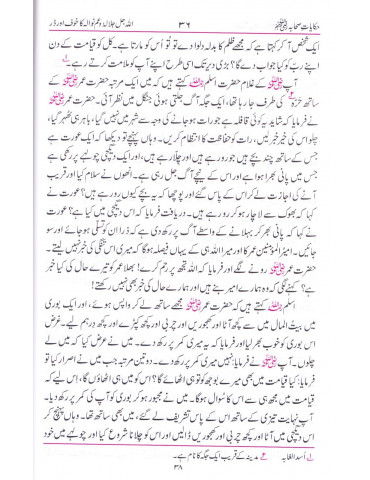 حکایات صحابہ ؓ ۳۶ اللہ جل جلالہ وعم نوالہ کا خوف اور ڈر
ایک شخص آ کر کہتا ہے کہ مجھے ظلم کا بدلہ دلوا دے تو تُو اُس کو مارتا ہے۔ کل کو قیامت کے دن
اپنے رب کو کیا جواب دے گا؟ بڑی دیر تک اسی طرح اپنے آپ کو ملامت کرتے رہے۔
آپ کے غلام حضرت اسلم کہتے ہیں کہ میں ایک مرتبہ حضرت عمر
کے ساتھ حرّہ کی طرف جا رہا تھا، ایک جگہ آگ جلتی ہوئی جنگل میں نظر آئی۔ حضرت عمر
نے فرمایا کہ شاید یہ کوئی قافلہ ہے جو رات ہو جانے کی وجہ سے شہر میں نہیں گیا، باہر ہی ٹھہر گیا،
چلو اس کی خیر خبر لیں، رات کو حفاظت کا انتظام کریں۔ وہاں پہنچے تو دیکھا کہ ایک عورت ہے
جس کے ساتھ چند بچے ہیں جو رو رہے ہیں اور چلا رہے ہیں، اور ایک دیگچی چولہے پر رکھی ہے
جس میں پانی بھرا ہوا ہے اور اس کے نیچے آگ جل رہی ہے۔ انھوں نے سلام کیا اور قریب
آنے کی اجازت لے کر اس کے پاس گئے اور پوچھا کہ یہ بچے کیوں رو رہے ہیں؟ عورت نے
کہا کہ بھوک سے لاچار ہو کر رو رہے ہیں۔ دریافت فرمایا کہ اس دیگچی میں کیا ہے؟ عورت
نے کہا کہ پانی بھر کر بہلانے کے واسطے آگ پر رکھ دی ہے کہ ذرا ان کو تسلّی ہو جائے اور سو
جائیں۔ امیر المؤمنین عمر کا اور میرا اللہ ہی کے یہاں فیصلہ ہوگا کہ میری اس تنگی کی خبر نہیں لیتے۔
حضرت عمر رونے لگے اور فرمایا کہ اللہ تجھ پر رحم کرے! بھلا عمر کو تیرے حال کی کیا خبر
ہے؟ کہنے لگی کہ وہ ہمارے امیر بنے ہیں اور ہمارے حال کی خبر بھی نہیں رکھتے!
اسلم کہتے ہیں کہ حضرت عمر مجھے ساتھ لے کر واپس ہوئے، اور ایک بوری
میں بیت المال میں سے کچھ آٹا اور کھجوریں اور چربی اور کچھ کپڑے اور کچھ درہم لیے۔ غرض
اس بوری کو خوب بھر لیا اور فرمایا کہ یہ میری کمر پر رکھ دے۔ میں نے عرض کیا کہ میں لے
چلوں۔ آپ نے فرمایا: نہیں میری کمر پر رکھ دے۔ دو تین مرتبہ جب میں نے اصرار کیا تو
فرمایا: کیا قیامت میں بھی میرے بوجھ کو تو ہی اٹھائے گا؟ اس کو میں ہی اٹھاؤں گا، اس لیے کہ
قیامت میں مجھ ہی سے اس کا سوال ہوگا۔ میں نے مجبور ہو کر بوری کو آپ کی کمر پر رکھ دیا۔
آپ نہایت تیزی کے ساتھ اس کے پاس تشریف لے گئے، میں بھی ساتھ تھا۔ وہاں پہنچ کر
اس دیگچی میں آٹا اور کچھ چربی اور کھجوریں ڈالیں اور اس کو چلانا شروع کیا اور چولہے میں خود
اُسد الغابہ مدینہ کے قریب ایک جگہ کا نام ہے۔
۳۸